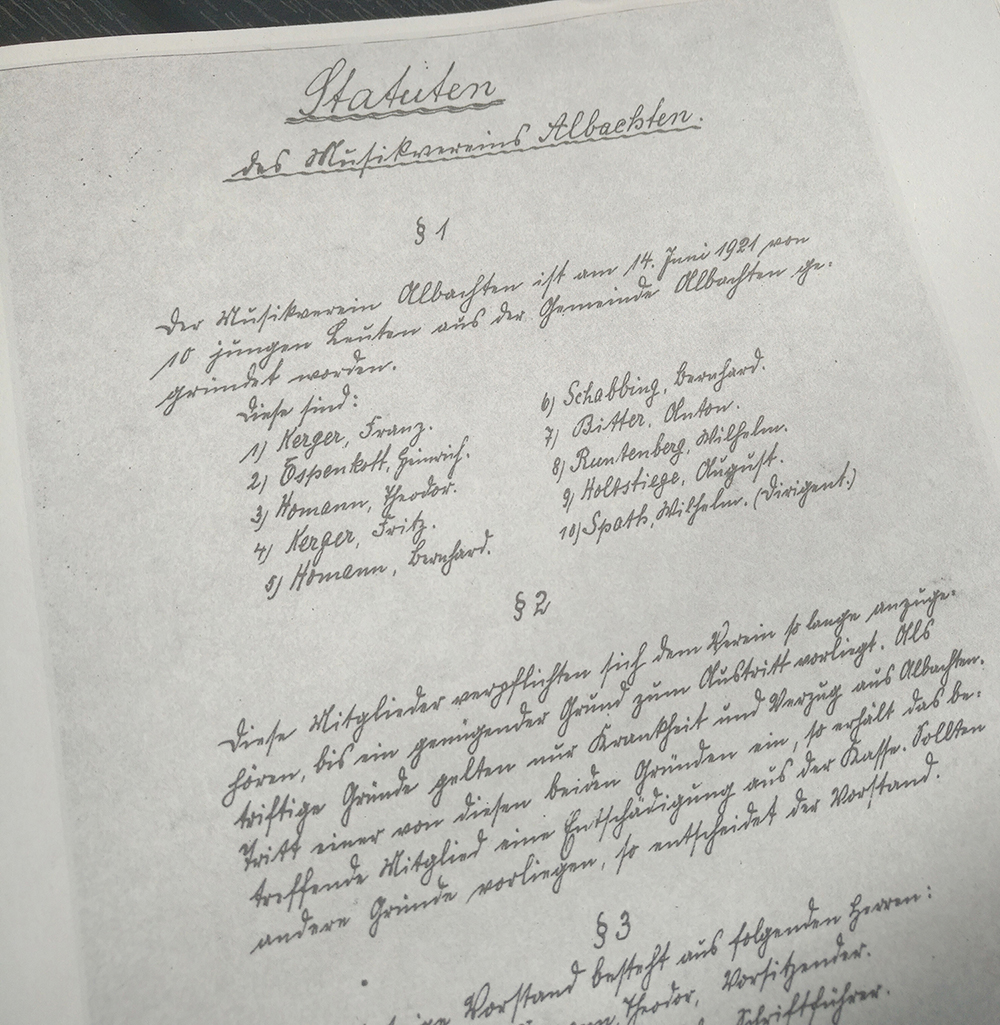 Statuten
des Musikvereins Albachten.
§ 1
Der Musikverein Albachten ist am 14. Juni 1921 von
10 jungen Leuten aus der Gemeinde Albachten ge-
gründet worden.
Diese sind:
1) Kerger, Franz.
2) Espenkott, Heinrich.
3) Homann, Theodor.
4) Kerger, Fritz.
5) Homann, Bernhard.
6) Schabbing, Bernhard.
7) Bitter, Anton.
8) Runtenberg, Wilhelm.
9) Holtstiege, August.
10) Spath, Wilhelm. (Dirigent.)
§ 2
Diese Mitglieder verpflichten sich dem Verein so lange anzuge-
hören, bis ein genügender Grund zum Austritt vorliegt. Als
triftige Gründe gelten nur Krankheit und Verzug aus Albachten.
Tritt einer von diesen beiden Gründen ein, so erhält das be-
treffende Mitglied eine Entschädigung aus der Kasse. Sollten
andere Gründe vorliegen, so entscheidet der Vorstand.
§ 3
Vorstand besteht aus folgenden Herren:
Theodor, Vorsitzender.
Schriftführer.